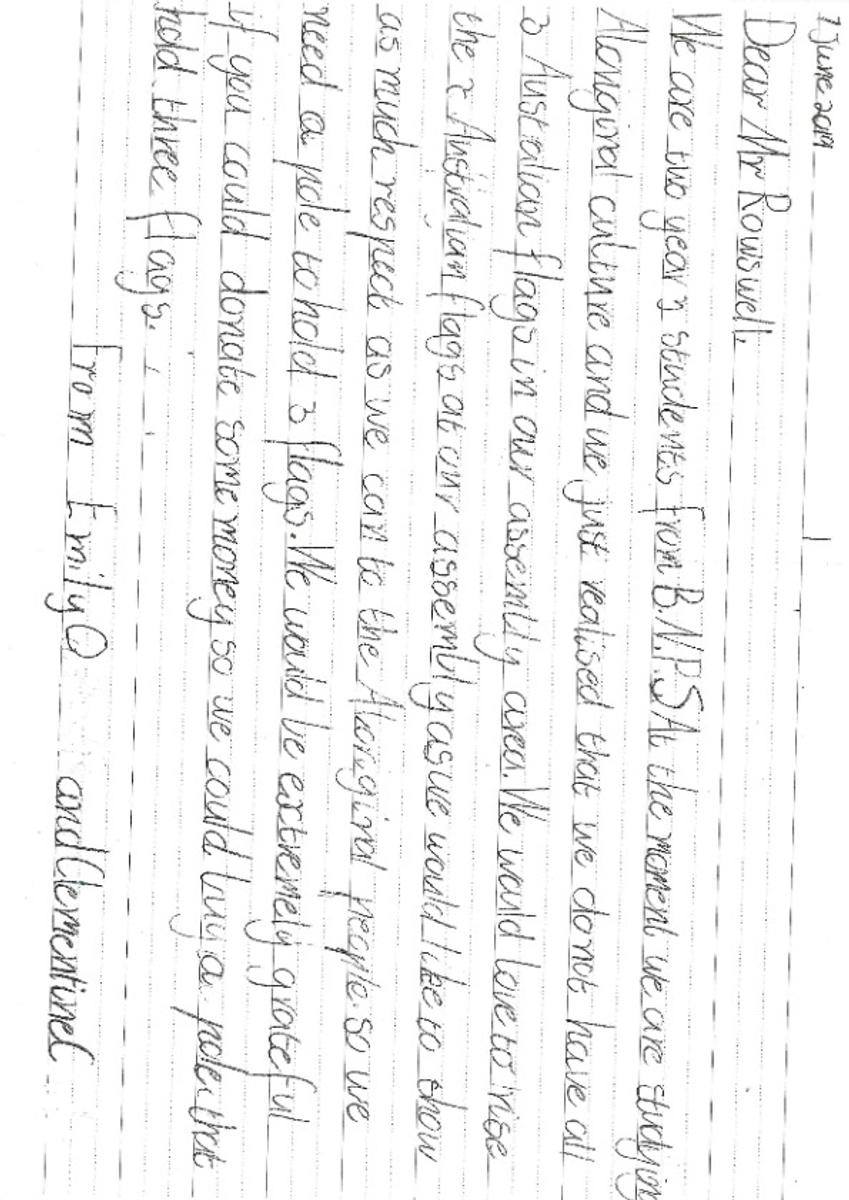 7 June 2019
Dear Mr Rowswell,
We are two year 2 students from B.N.P.S At the moment we are studyin
Aboriginal culture and we just realised that we do not have all
3 Australian flags in our assembly area. We would love to rise
the 2 Australian flags at our assembly as we would like to show
as much respect as we can to the Aboriginal people. so we
need a pole to hold 3 flags. We would be extremely grateful
if you could donate some money so we could buy a pole that
hold three flags.
From Emily O and Clementine C